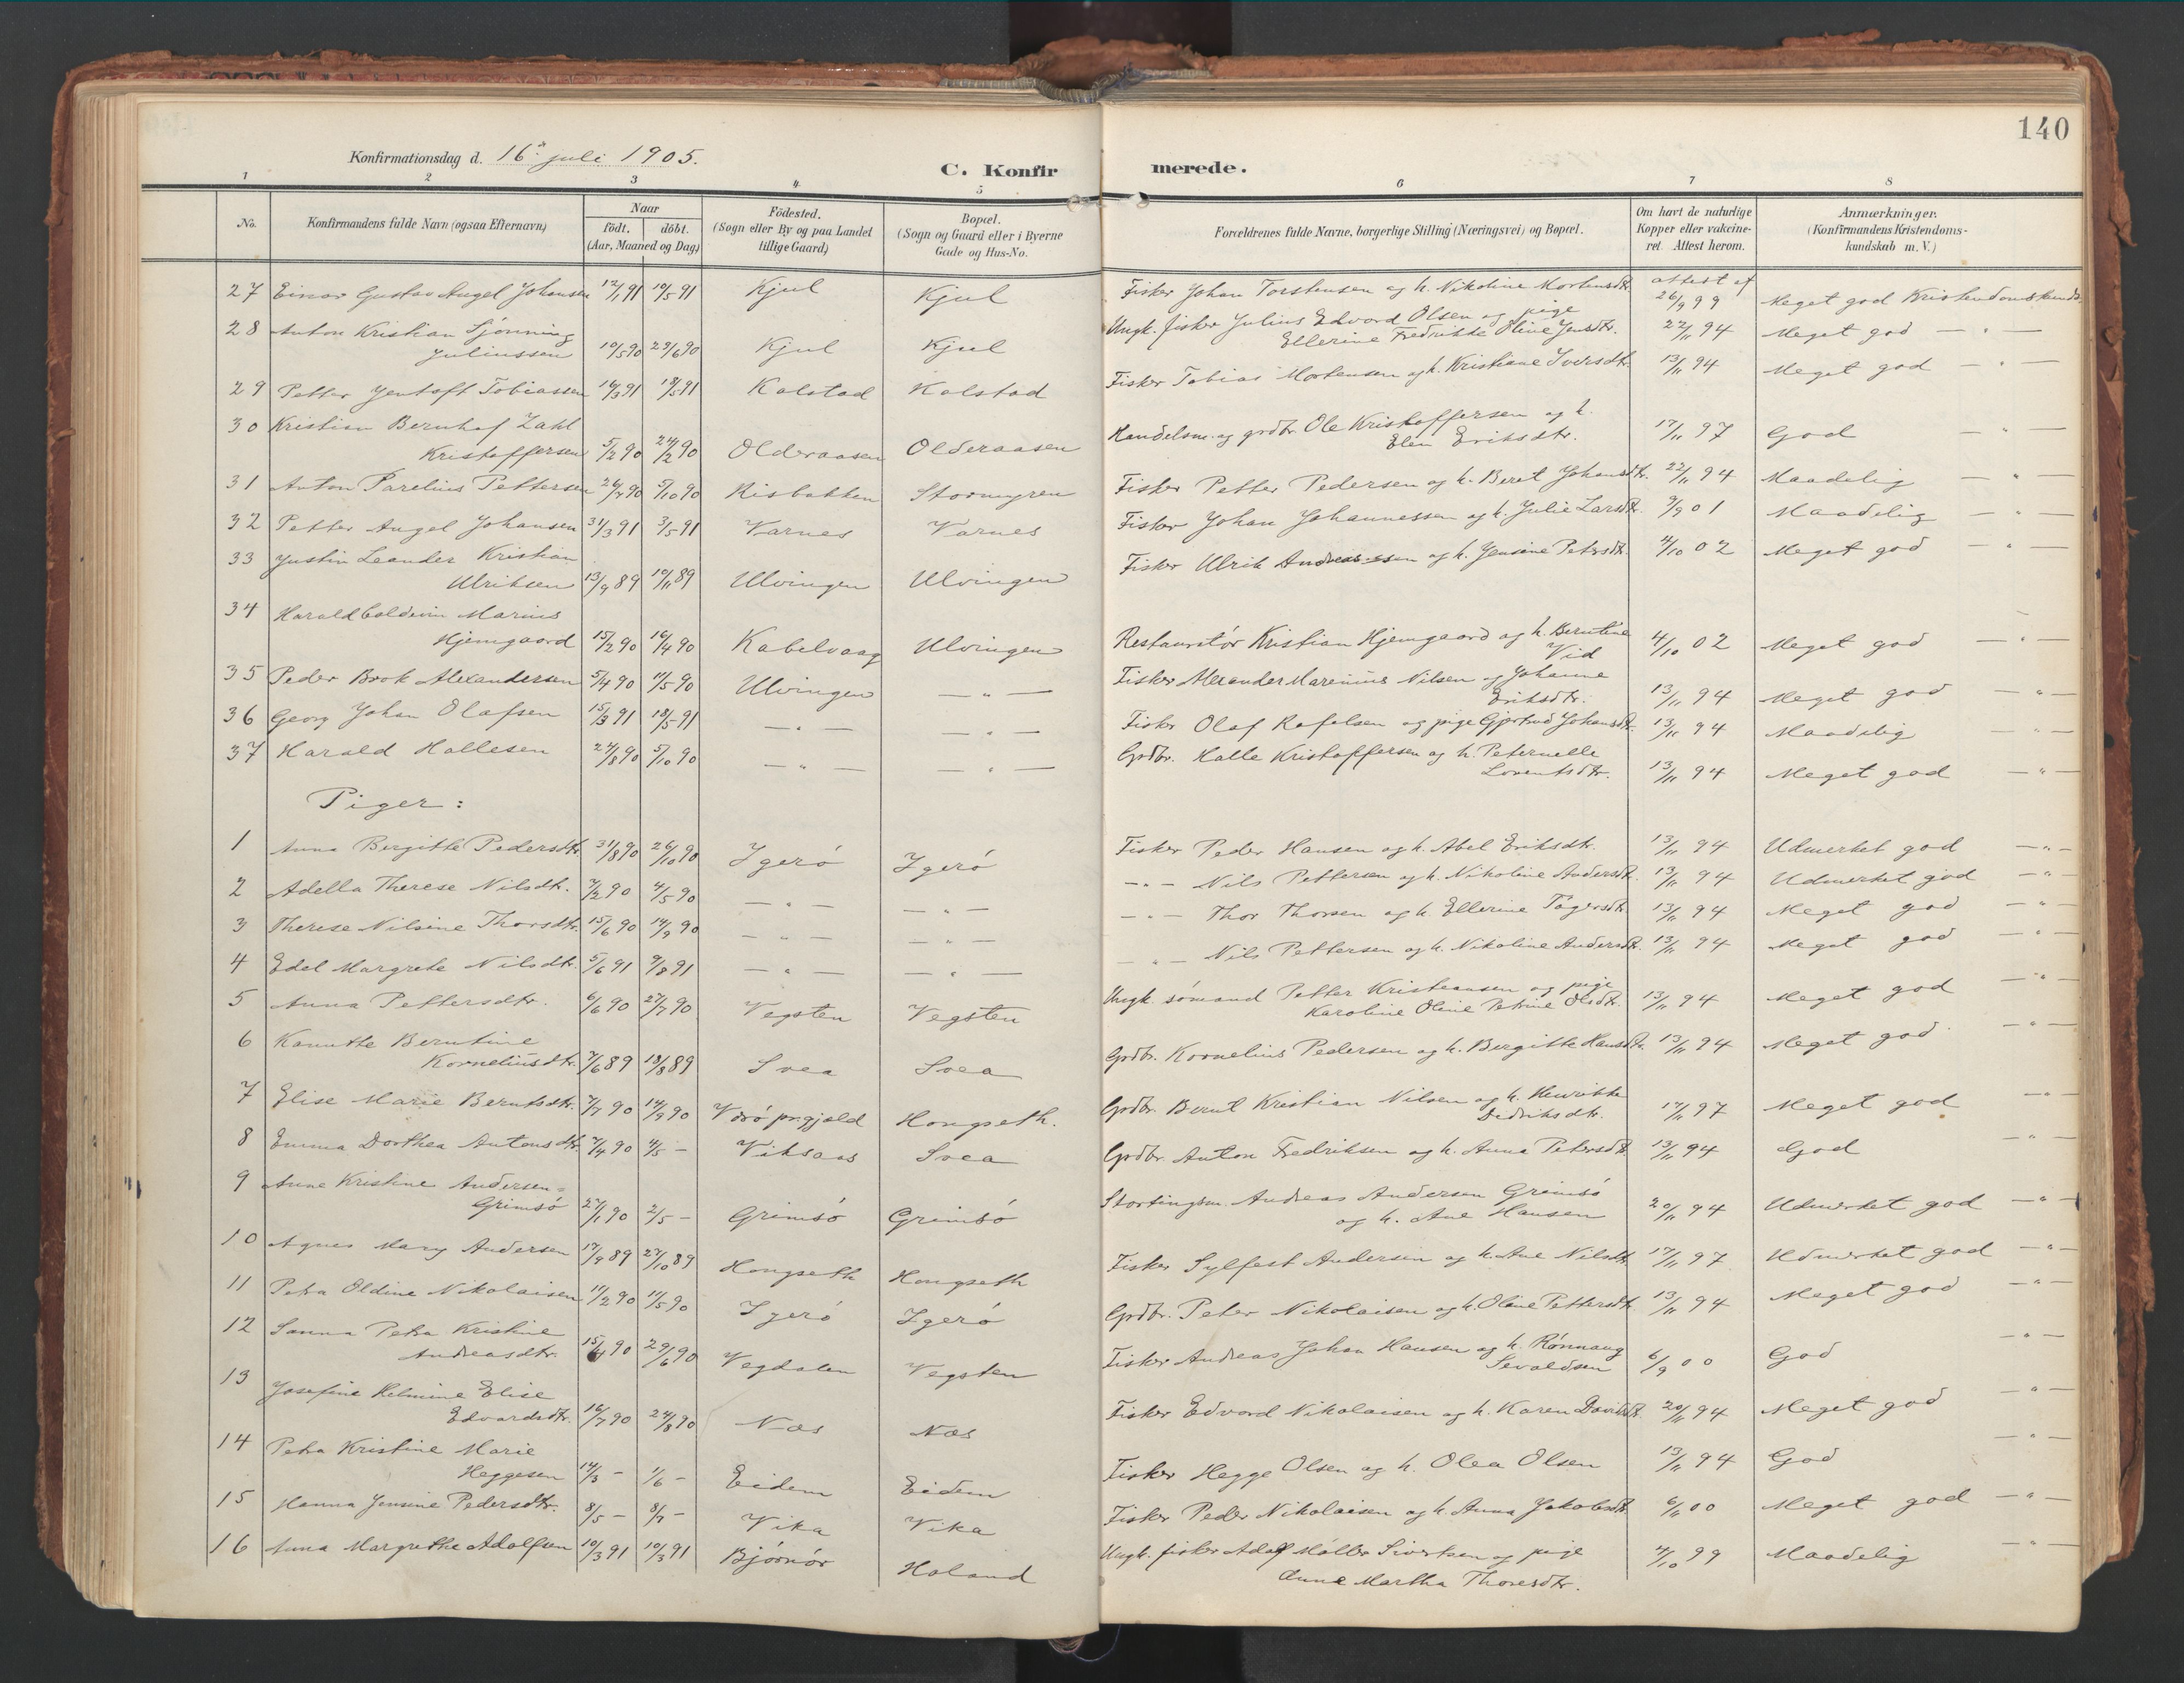 140
Konfirmationsdag d. 16de juli 1905.
C. Konfirmerede.
1 2 3 4 5 6 7 8
No. Konfirmandens fulde Navn (ogsaa Efternavn) Naar födt. döbt. (Aar, Maaned og Dag) Födested. (Sogn eller By og paa Landet tillige Gaard) Bopæl. (Sogn og Gaard eller i Byerne Gade og Hus-No. Forældrenes fulde Navne, borgerlige Stilling (Næringsvei) og Bopæl. Om havt de naturlige Kopper eller vakcineret. Attest herom. Anmærkninger. (Konfirmandens Kristendomskundskab m. V.)
27 Einar Gustav Angel Johansen 12/1 91 10/5 91 Kjul Kjul Fisker Johan Torstensen og h. Nikoline Mortensdtr. attest af 26/9 99 Meget god Kristendomskundsk.
28 Anton Kristian Sjönning
Juliussen 10/5 90 29/6 90 Kjul Kjul Ungk. fisker Julius Edvard Olsen og pige
Ellerine Fredrikke Oline Jensdtr. 22/11 94 Meget god — " —
29 Petter Jentoft Tobiassen 16/3 91 18/5 91 Kalstad Kalstad Fisker Tobias Mortensen og h. Kristiane Iversdtr. 13/11 94 Meget god — " —
30 Kristian Bernhof Zahl
Kristoffersen 5/2 90 24/2 90 Olderaasen Olderaasen Handelsm. og grdbr. Ole Kristoffersen og h.
Elen Eriksdtr. 17/11 97 God — " —
31 Anton Parelius Pettersen 26/7 90 5/10 90 Risbakken Stormyren Fisker Petter Pedersen og h. Beret Johansdtr. 22/11 94 Maadelig — " —
32 Petter Angel Johansen 31/3 91 3/5 91 Varnes Varnes Fisker Johan Johannessen og h. Julie Larsdtr. 9/9 01 Maadelig — " —
33 Justin Leander Kristian
Ulriksen 13/9 89 10/11 89 Ulvingen Ulvingen Fisker Ulrik Andreassen og h. Jensine Petersdtr. 4/10 02 Meget god — " —
34 Harald Baldevin Marius
Hjemgaard 15/2 90 16/4 90 Kabelvaag Ulvingen Restauratör Kristian Hjemgaard og h. Berntine
Vid 4/10 02 Meget god — " —
35 Peder Brok Alexandersen 5/4 90 11/5 90 Ulvingen — " — Fisker Alexander Marenius Nilsen og Johanne
Eriksdtr. 13/11 94 Meget god — " —
36 Georg Johan Olafsen 15/3 91 18/5 91 — " — — " — Fisker Olaf Rafelsen og pige Gjertrud Johansdtr. 13/11 94 Maadelig — " —
37 Harald Hallesen 24/8 90 5/10 90 — " — — " — Grdbr. Halle Kristoffersen og h. Peternelle
Lorentsdtr. 13/11 94 Meget god — " —
Piger:
1 Anna Bergitte Pedersdtr. 31/8 90 26/10 90 Igerö Igerö Fisker Peder Hansen og h. Abel Eriksdtr. 13/11 94 Udmerket god — " —
2 Adella Therese Nilsdtr. 7/2 90 4/5 90 — " — — " — — " — Nils Pettersen og h. Nikoline Andersdtr. 13/11 94 Udmerket god — " —
3 Therese Nilsine Thorsdtr. 15/6 90 14/9 90 — " — — " — — " — Thor Thorsen og h. Ellerine Tøgersdtr. 13/11 94 Meget god — " —
4 Edel Margrete Nilsdtr. 5/6 91 9/8 91 — " — — " — — " — Nils Pettersen og h. Nikoline Andersdtr. 13/11 94 Meget god — " —
5 Anna Pettersdtr. 6/6 90 27/7 90 Vegsten Vegsten Ungk. sömand Petter Kristiansen og pige
Karoline Oline Petrine Olsdtr. 13/11 94 Meget god — " —
6 Kanutte Berntine
Korneliusdtr. 7/6 89 18/8 89 Svea Svea Grdbr. Kornelius Pedersen og h. Bergitte Hansdtr. 13/11 94 Meget god — " —
7 Elise Marie Berntsdtr. 7/7 90 14/9 90 Værö prgjæld Hongseth. Grdbr. Bernt Kristian Nilsen og h. Henrikke
Dedriksdtr. 17/11 97 Meget god — " —
8 Emma Dorthea Antonsdtr. 7/4 90 4/5 — Viksaas Svea Grdbr. Anton Fredriksen og h. Anna Petersdtr. 13/11 94 God — " —
9 Anne Kristine Andersen=
Grimsö 27/1 90 2/5 — Grimsö Grimsö Stortingsm. Andreas Andersen Grimsö
og h. Ane Hansen 20/11 94 Udmerket god — " —
10 Agnes Mary Andersen 17/9 89 27/10 89 Hongseth Hongseth Fisker Sylfest Andersen og h. Ane Nilsdtr. 17/11 97 Udmerket god — " —
11 Petra Oldine Nikolaisen 11/2 90 11/5 90 Igerö Igerö Grdbr. Peter Nikolaisen og h. Oline Pettersdtr. 13/11 94 Meget god — " —
12 Sanna Petra Kristine
Andreasdtr. 15/4 90 29/6 90 Vegdalen Vegsten Fisker Andreas Johan Hansen og h. Rønnaug
Sevaldsen 6/9 00 God — " —
13 Josefine Helmine Elise
Edvardsdtr. 16/7 90 24/8 90 Næs Næs Fisker Edvard Nikolaisen og h. Karen Davidsdtr. 20/11 94 Meget god — " —
14 Petra Kristine Marie
Heggesen 14/3 — 1/6 — Eidem Eidem Fisker Hegge Olsen og h. Olea Olsen 13/11 94 God — " —
15 Hanna Jensine Pedersdtr. 8/5 — 8/7 — Vika Vika Fisker Peder Nikolaisen og h. Anna Jakobsdtr. 6/11 00 Meget god — " —
16 Anna Margrethe Adolfsen 10/3 91 10/3 91 Bjørnör Holand Ungk. fisker Adolf Møller Sivertsen og pige
Anne Martha Thoresdtr. 7/10 99 Maadelig — " —